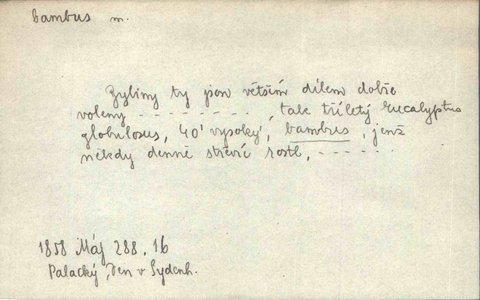 bambus m.
Byliny ty jsou většinou dílem dobře
voleny - - - - - - - - - , tak tříletý Eucalyptus
globulosus, 40' vysoký, bambus, jenž
někdy denně střevíc rostl, - - - - - -
1858 Máj 288, 16
Palacký, Den v Sydenh.